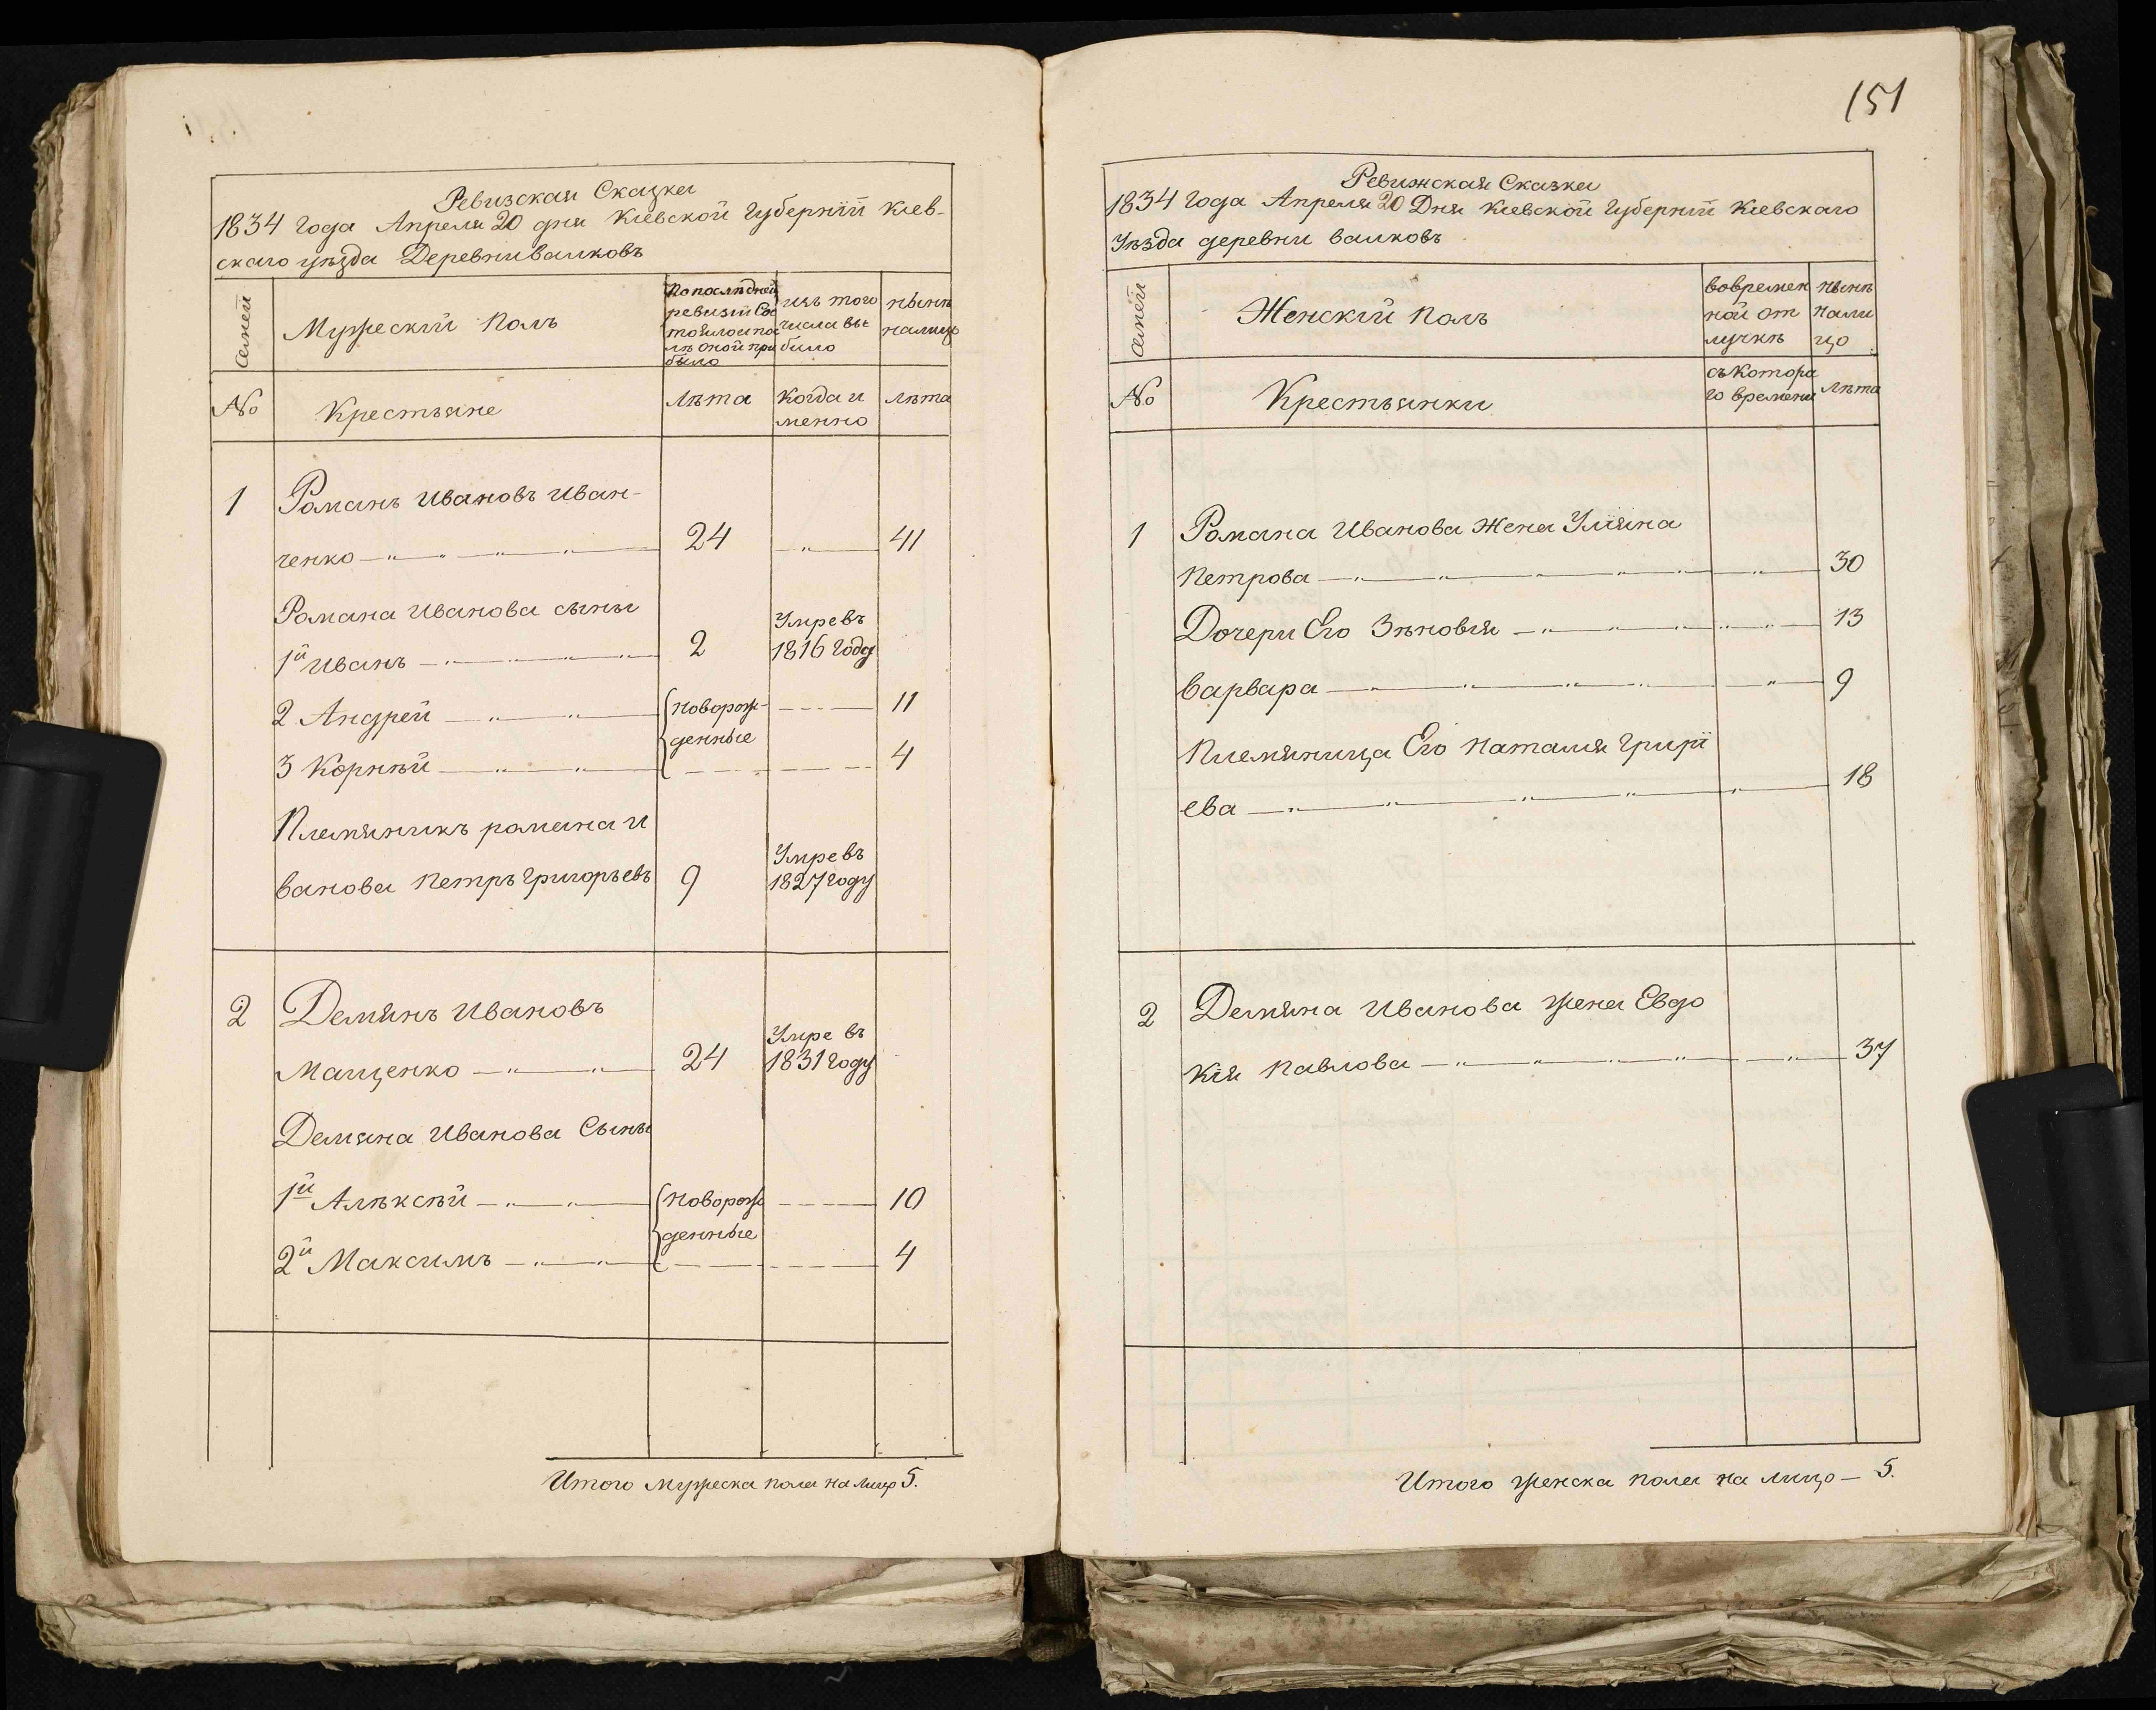 Ревизская Сказка
1834 года Апреля 20 дня Кіевской Губерніи Кіев-
скаго уѣзда Деревни Валковъ
Семей
Мужескій Полъ
По послѣдней
ревизіи Со
тоялось и по
лѣ оной при
было
изъ того
числа вы
было
нынѣ
налицо
№
Крестьяне
Лѣта
Когда и
менно
Лѣта
1 Романъ Ивановъ Иван-
ченко 24 41
Романа Иванова сыны
1й Иванъ 2 Умре въ 1816 году
2 Андрей новорож- 11
денные
3 Корнѣй 4
Племяникъ романа и
ванова Петръ Григорьевъ 9 Умре въ 1827 году
2 Демянъ Ивановъ
Мащенко 24 Умре въ 1831 году
Демяна Иванова Сыны
1й Алѣксѣй новорож 10
денные
2й Максимъ 4
Итого Мужеска пола на лицо 5.
151
Ревижская Сказка
1834 года Апреля 20 Дня Кіевской Губерніи Кіевскаго
Уѣзда деревни Валковъ
Семей
Женскій Полъ
Вовремен
ной от
лучкѣ
нынѣ
нали
цо
№
Крестьянки
съ Котора
го времени
Лѣта
1 Романа Иванова Жена Уліяна
Петрова 30
Дочери Его Зѣновія 13
Варвара 9
Племяница Его Наталия Григорї
ева 18
2 Демяна Иванова жена Евдо
кія Павлова 37
Итого женска пола на лицо — 5.